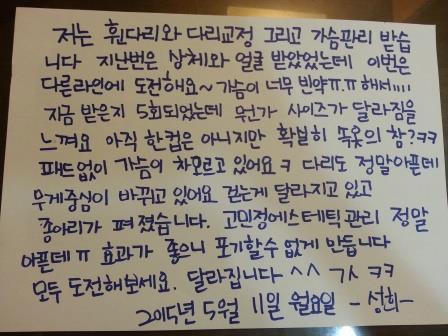 저는 휜다리와 다리교정 그리고 가슴관리 받습
니다 지난번은 상체와 얼굴 받았었는데 이번은
다른라인에 도전해요~ 가슴이 너무 빈약ㅠ.ㅠ해서....
지금 받은지 5회되었는데 뭔가 사이즈가 달라짐을
느껴요 아직 한컵은 아니지만 확실히 속옷의 참?ㅋㅋ
패드없이 가슴이 차오르고 있어요ㅋ 다리도 정말아픈데
무게중심이 바뀌고 있어요 걷는게 달라지고 있고
종아리가 펴졌습니다. 고민정에스테틱관리 정말
아픈데 ㅠ 효과가 좋으니 포기할수 없게 만듭니다
모두 도전해보세요. 달라집니다 ^^ ㄱㅅ ㅋㅋ
2015년 5월 11일 월요일 -성희-